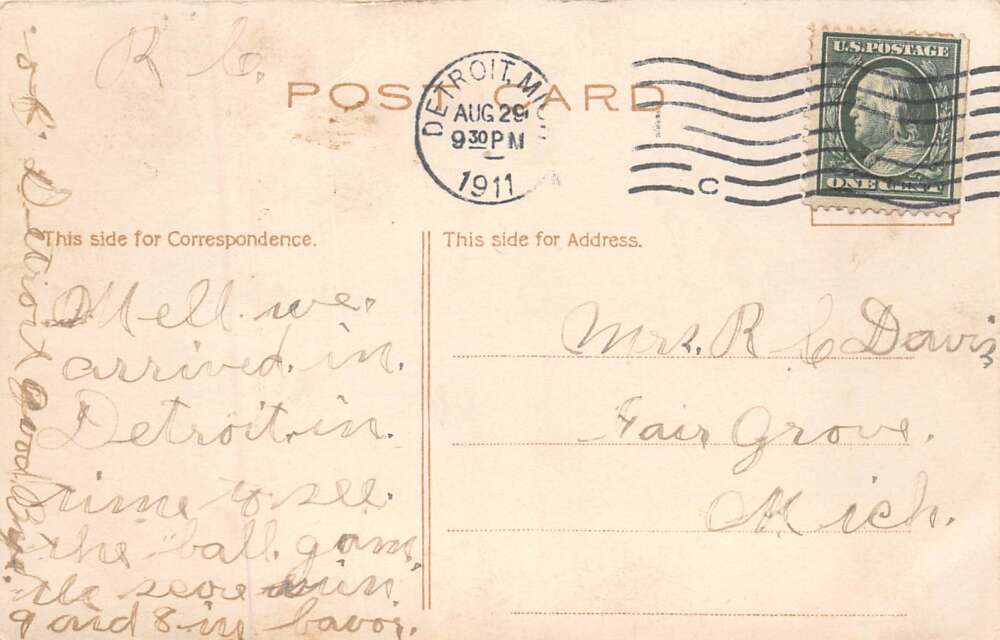 R C.
POST CARD
DETROIT, MICH
AUG 29
9 30 PM
1911
C
U.S. POSTAGE
ONE CENT
This side for Correspondence.
This side for Address.
Well we.
arrived. in.
Detroit. in.
time to see.
the ball. gam.
score
9 and 8 in favor.
Detroit good. Bye.
Mrs. R C Davis
Fair Grove.
Mich.